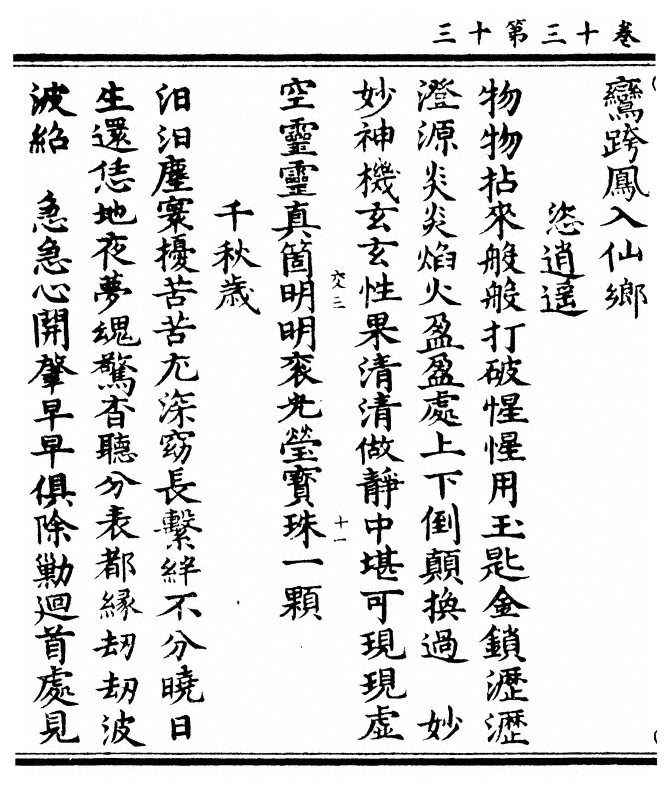 三十第三十卷
鸞跨鳳入仙鄉
恣逍遥
物物拈來般般打破惺惺用玉匙金鎖瀝瀝
澄源炎炎焰火盈盈處上下倒顛換過 妙
妙神機玄玄性果清清做靜中堪可現現虛
空靈靈真箇明明衮光瑩寶珠一顆
交三
十一
千秋歲
汩汩塵寰擾苦苦尤深窈長繫絆不分曉日
生還恁地夜夢魂驚杳聽分表都緣劫劫波
波紿 急急心開肇早早俱除勦迴首處見